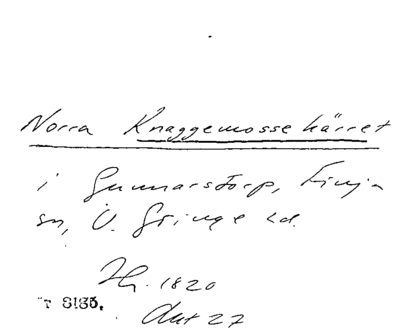 Norra Knaggemossekärret
i Gunnarstorp, Finja
sn, V. Göinge hd.
Hg. 1820
Akt 27